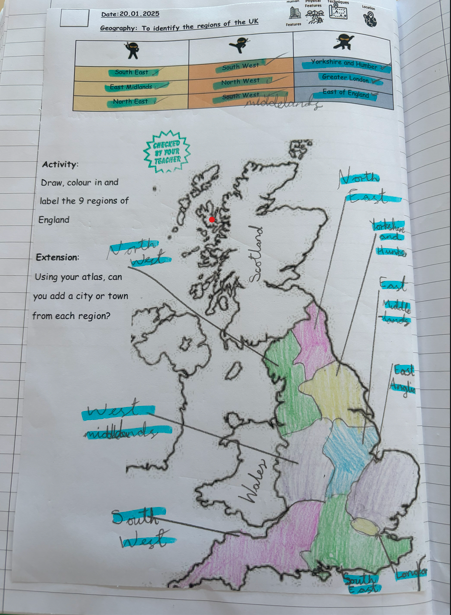 Date:20.01.2025
Geography: To identify the regions of the UK
South East
South West
Yorkshire and Humber
East Midlands
North West
Greater London
North East
South West
middlelands
East of England
CHECKED
BY YOUR
TEACHER
Activity:
Draw, colour in and
label the 9 regions of
England
Extension:
Using your atlas, can
you add a city or town
from each region?
North
West
Scotland
North
East
and
East
Middle
lands
East
Anglia
West
middlelands
Wales
South
West
South
East
London